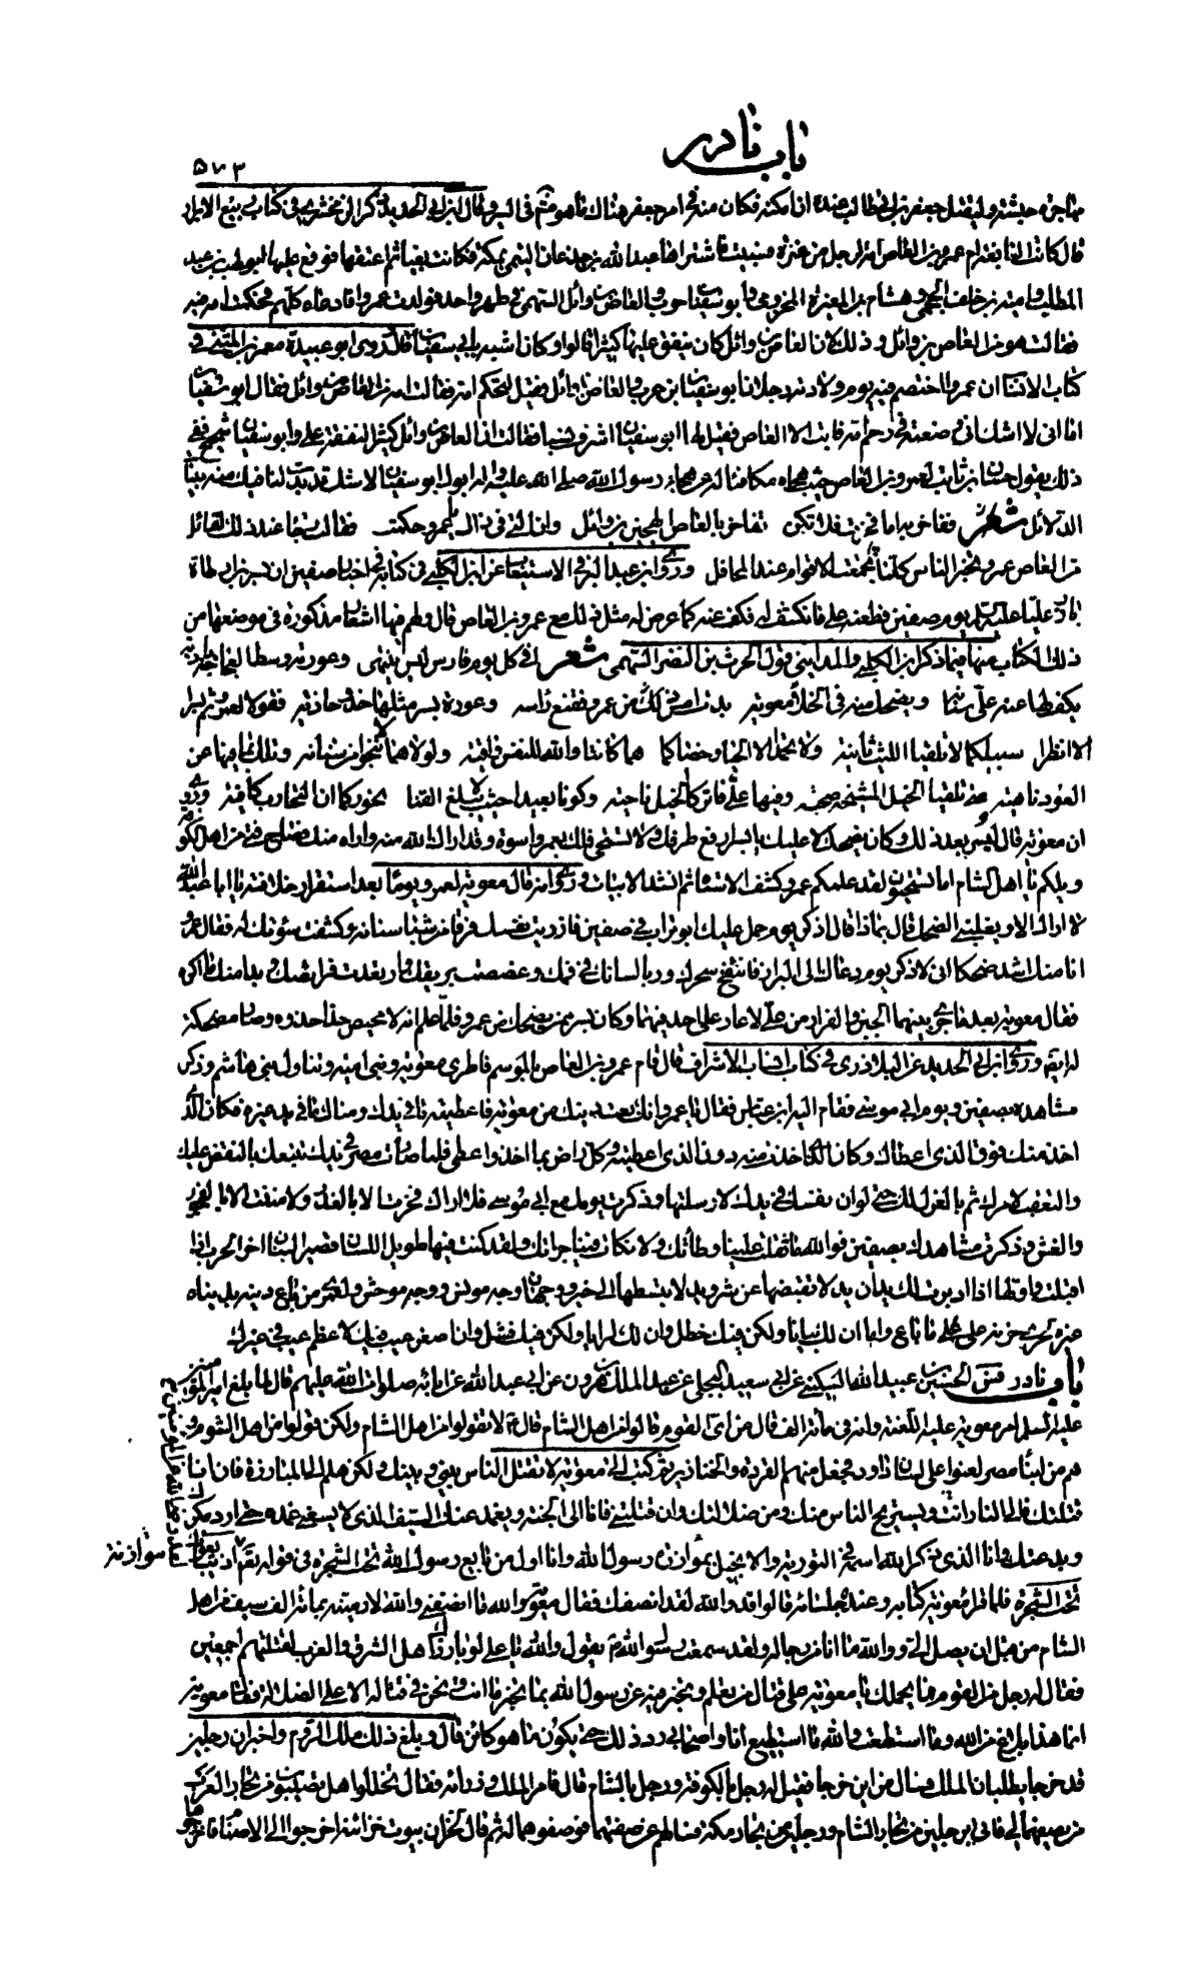 باب نادر
۵۷۳
مهاجرة حبشته وليقتل جعفر بن ابي طالب عنده ان امكنه فكان منه في امر جعفر هناك ما هو في السير وقال ابن ابي الحديد ذكر الزمخشري في كتاب ربيع الابرار
قال كانت النابغة ام عمرو بن العاص امة لرجل من عنزة فسبيت فاشتراها عبد الله بن جدعان التيمي بمكة فكانت بغيا ثم اعتقها فوقع عليها ابو لهب بن عبد
المطلب وامية بن خلف الجمحي وهشام بن المغيرة المخزومي وابو سفيان بن حرب والعاص بن وائل السهمي في طهر واحد فولدت عمروا فادعاه كلهم فحكمت امه فيه
فقالت هو من العاص بن وائل وذلك لان العاص بن وائل كان ينفق عليها كثيرا قالوا وكان اشبه بابي سفيان قال وروى ابو عبيدة معمر بن المثنى في
كتاب الانساب ان عمروا اختصم فيه يوم ولادته رجلان ابو سفيان بن حرب والعاص بن وائل فقيل لتحكم امه فقالت امه من العاص بن وائل فقال ابو سفيان
اما اني لا اشك اني وضعته في رحم امه فابت الا العاص فقيل لها ابو سفيان اشرف نسبا فقالت ان العاص بن وائل كثير النفقة علي وابو سفيان شحيح ففي
ذلك يقول حسان بن ثابت لعمرو بن العاص حيث هجاه مكافئا له عن هجاء رسول الله صلى الله عليه واله ابوك ابو سفيان لا شك قد بدت لنا فيك منه بينات
الدلائل شعر ففاخر به اما فخرت فلا تكن تفاخر بالعاص الهجين بن وائل وان التي في ذاك يا عمرو حكمت فقالت رجاء عند ذلك لنائل
من العاص عمرو تخبر الناس كلما تجمعت الاقوام عند المحافل وروى ابن عبد البر في الاستيعاب عن ابن الكلبي في كتابه في اخبار صفين ان بسر بن ارطاة
بارز عليا عليه السلام يوم صفين فطعنه علي فانكشف له فكف عنه كما عرض له مثل ذلك مع عمرو بن العاص قال ولهم فيها اشعار مذكورة في موضعها من
ذلك الكتاب منها فيما ذكر ابن الكلبي والمدايني قول الحرث بن النضر السهمي شعر افي كل يوم فارس ليس ينتهي وعورته وسط العجاجة باديه
يكف لها عنه علي سنانه ويضحك منه في الخلاء معوية بدت امس من عمرو فقنع راسه وعورة بسر مثلها حذو حاذيه فقولا لعمرو ثم بسر
الا انظرا سبيلكما لا تلقيا الليث ثانيه ولا تحمدا الا الحيا وخصاكما هما كانتا والله للنفس واقيه ولولاهما لم تنجوا من سنانه وتلك بما فيها عن
العود ناهيه متى تلقيا الخيل المشيحة صبحة وفيها علي فاتركا الخيل ناحيه وكونا بعيدا حيث لا يبلغ القنا نحوركما ان التجارب كافيه وروى
ان معوية قال لبسر بعد ذلك وكان يضحك لا عليك يا بسر ارفع طرفك ولا تستحي فلك بعمرو اسوة وقد اراك الله منه واراه منك فصاح فتى من اهل الكوفة
ويلكم يا اهل الشام اما تستحيون لقد علمكم عمرو كشف الاستاه ثم انشد الابيات وروى انه قال معوية لعمرو يوما بعد استقرار خلافته يا ابا عبد الله
لا اراك الا ويغلبني الضحك قال بماذا قال اذكر يوم حمل عليك ابو تراب في صفين فازريت نفسك فرقا من شبا سنانه وكشفت سوئتك له فقال عمرو
انا منك اشد ضحكا اني لاذكر يوم دعاك الى البراز فانتفخ سحرك وربا لسانك في فمك وغصصت بريقك وارتعدت فرائصك وبدا منك ما اكره
فقال معوية بعد ما جرى بينهما الجبن والفرار من علي لا عار على احد فيهما وكان بسر ممن يضحك من عمرو فلما علم انه لا محيص حذا حذوه وصار مضحكة
له ايضا وروى ابن ابي الحديد عن البلاذري في كتاب انساب الاشراف قال قام عمرو بن العاص بالموسم فاطرى معوية وبني امية وتناول بني هاشم وذكر
مشاهده بصفين ويوم ابي موسى فقام اليه ابن عباس فقال يا عمرو انك بعت دينك من معوية فاعطيته ما في يدك ومناك ما في يد غيره فكان الذي
اخذ منك فوق الذي اعطاك وكان الذي اخذت منه دون الذي اعطيته وكل راض بما اخذ واعطى فلما صارت مصر في يدك تتبعك بالنقض عليك
والتعقب لامرك ثم بالعزل لك حتى لو ان نفسك في يدك لارسلتها وذكرت يومك مع ابي موسى فلا اراك فخرت الا بالغدر ولا مننت الا بالفجور
والغش وذكرت مشاهدك بصفين فوالله ما ثقلت علينا وطأتك ولا نكات فينا جراتك ولقد كنت فيها طويل اللسان قصير البنان اخر الحرب اذا
اقبلت واولها اذا ادبرت لك يدان يد لا تقبضها عن شر ويد لا تبسطها الى خير ووجهان وجه مونس ووجه موحش ولعمري من باع دينه بدنياه
غيره لحري حزنه على ما باع واما ان لك بيانا ولكن فيك خطل وان لك لرايا ولكن فيك فشل وان اصغر عيب فيك لاعظم عيب في غيرك
باب نادر الحسين بن عبيد الله السكيني عن ابي سعيد البجلي عن عبد الملك بن هرون عن ابي عبد الله عن ابائه صلوات الله عليهم قال لما بلغ امير المؤمنين
عليه السلم امر معوية عليه اللعنة وانه في مائة الف قال من اي القوم قالوا من اهل الشام قال لا تقولوا من اهل الشام ولكن قولوا من اهل الشوم
هم من ابناء مصر لعنوا على لسان داود فجعل منهم القردة والخنازير ثم كتب الى معوية لا تقتل الناس بيني وبينك ولكن هلم الى المبارزة فان انا
قتلتك فالى النار انت ويستريح الناس منك ومن ضلالتك وان قتلتني فانا الى الجنة ويغمد عنك السيف الذي لا يسعني غمده حتى ارد مكرك
وبدعتك وانا الذي ذكر الله اسمه في التورية والانجيل بموازرة رسول الله وانا اول من بايع رسول الله تحت الشجرة في قوله اذ يبايعونك
تحت الشجرة فلما قرا معوية كتابه وعنده جلسائه قالوا قد والله لقد انصفك فقال معوية والله ما انصفني والله لارمينه بمائة الف سيف من اهل
الشام من قبل ان يصل الي ووالله ما انا من رجاله ولقد سمعت رسول الله يقول والله يا علي لو بارزك اهل الشرق والغرب لقتلتهم اجمعين
فقال له رجل من القوم فما يحملك يا معوية على قتال من تعلم وتخبر فيه عن رسول الله بما تخبر ما انت ونحن في قتاله الا على الضلالة فقال معوية
انما هذا بلاغ من الله وما استطعت والله ما استطيع انا واصحابي رد ذلك حتى يكون ما هو كائن قال وبلغ ذلك ملك الروم واخبر ان رجلين
قد خرجا يطلبان الملك فسال من اين خرجا فقيل له رجل بالكوفة ورجل بالشام قال فامر الملك وزرائه فقال تخللوا هل تصيبون من تجار العرب
من يصفهما لي فاتي برجلين من تجار الشام ورجلين من تجار مكة فسالهم عن صفتهما فوصفوهما له ثم قال لخزان بيوت خزائنه اخرجوا الي الاصنام فاخرجوها